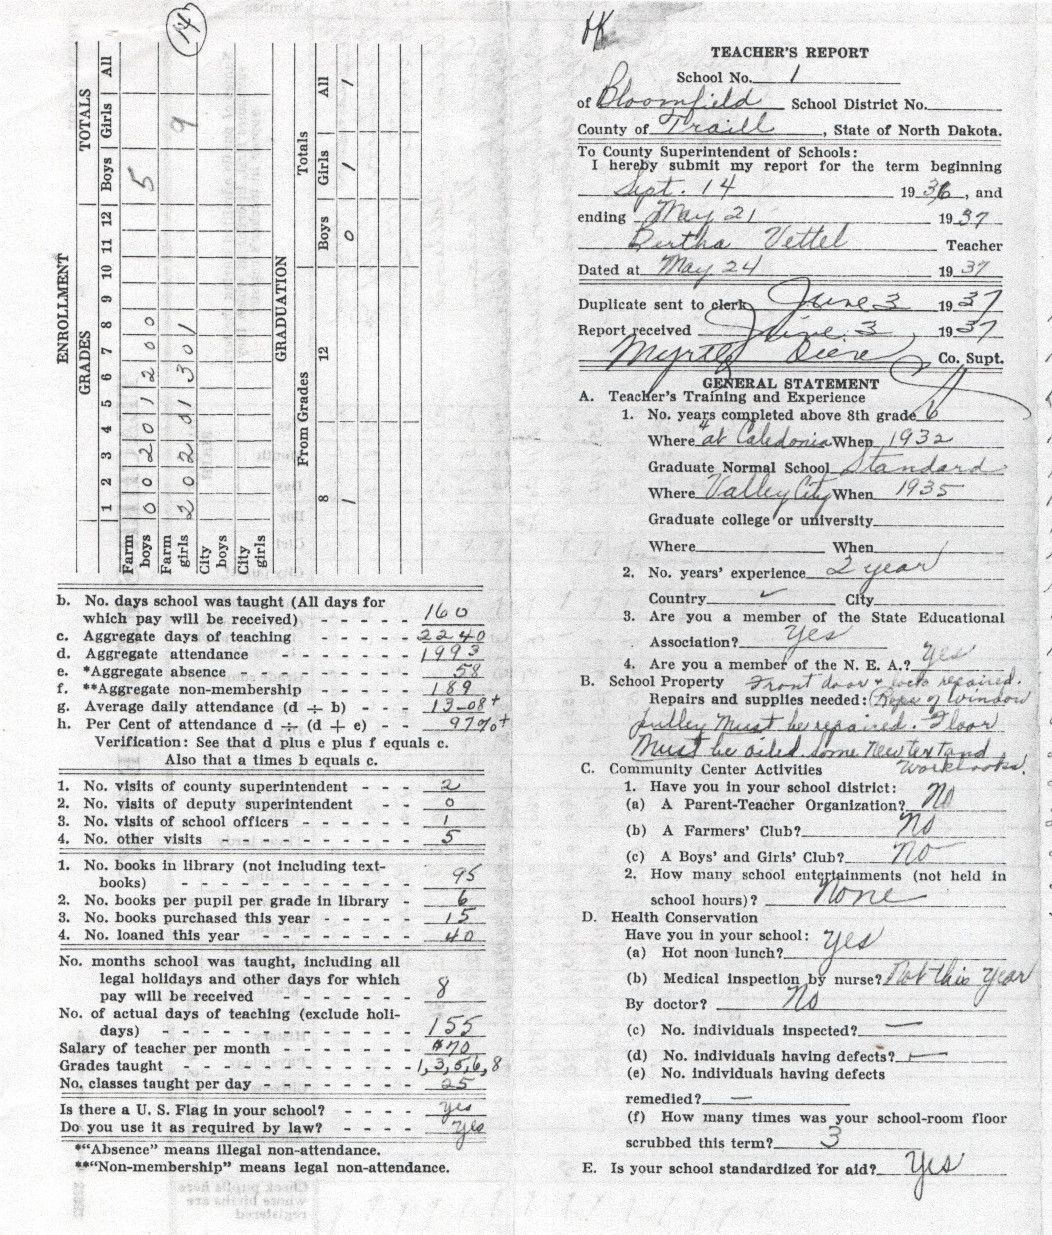 14
ENROLLMENT
GRADES TOTALS
1 2 3 4 5 6 7 8 9 10 11 12 Boys Girls All
Farm boys 0 0 2 0 1 2 0 0 5
Farm girls 2 0 2 0 1 3 0 1 9
City boys
City girls
GRADUATION
From Grades Totals
8 12 Boys Girls All
1 0 1 1
b. No. days school was taught (All days for
which pay will be received) - - - - - 160
c. Aggregate days of teaching - - - - - 2240
d. Aggregate attendance - - - - - - - 1993
e. *Aggregate absence - - - - - - - 58
f. **Aggregate non-membership - - - - - 189
g. Average daily attendance (d ÷ b) - - - 13-08+
h. Per Cent of attendance d ÷ (d + e) - - - 97%+
Verification: See that d plus e plus f equals c.
Also that a times b equals c.
1. No. visits of county superintendent - - - 2
2. No. visits of deputy superintendent - - - 0
3. No. visits of school officers - - - - - 1
4. No. other visits - - - - - - - - - 5
1. No. books in library (not including text-
books) - - - - - - - - - - - 95
2. No. books per pupil per grade in library - 6
3. No. books purchased this year - - - - - 15
4. No. loaned this year - - - - - - - - 40
No. months school was taught, including all
legal holidays and other days for which
pay will be received - - - - - - - 8
No. of actual days of teaching (exclude holi-
days) - - - - - - - - - - - - 155
Salary of teacher per month - - - - - - $70
Grades taught - - - - - - - - - - 1,3,5,6,8
No. classes taught per day - - - - - - - 25
Is there a U. S. Flag in your school? - - - - yes
Do you use it as required by law? - - - - yes
*"Absence" means illegal non-attendance.
**"Non-membership" means legal non-attendance.
OK
TEACHER'S REPORT
School No. 1
of Bloomfield School District No.
County of Traill, State of North Dakota.
To County Superintendent of Schools:
I hereby submit my report for the term beginning
Sept. 14 1936, and
ending May 21 1937
Bertha Vettel Teacher
Dated at May 24 1937
Duplicate sent to clerk June 3 1937
Report received June 3 1937
Myrtle Co. Supt.
GENERAL STATEMENT
A. Teacher's Training and Experience
1. No. years completed above 8th grade 6
Where 4 at Caledonia When 1932
Graduate Normal School Standard
Where Valley City When 1935
Graduate college or university
Where When
2. No. years' experience 2 year
Country ✓ City
3. Are you a member of the State Educational
Association? Yes
4. Are you a member of the N. E. A.? Yes
B. School Property Front door + repaired.
Repairs and supplies needed: (Rope of window
pulley must be repaired. Floor
Must be oiled some New text and
workbooks.
C. Community Center Activities
1. Have you in your school district:
(a) A Parent-Teacher Organization? No
(b) A Farmers' Club? No
(c) A Boys' and Girls' Club? No
2. How many school entertainments (not held in
school hours)? None
D. Health Conservation
Have you in your school:
(a) Hot noon lunch? yes
(b) Medical inspection by nurse? Not this year
By doctor? No
(c) No. individuals inspected? —
(d) No. individuals having defects? —
(e) No. individuals having defects
remedied? —
(f) How many times was your school-room floor
scrubbed this term? 3
E. Is your school standardized for aid? Yes